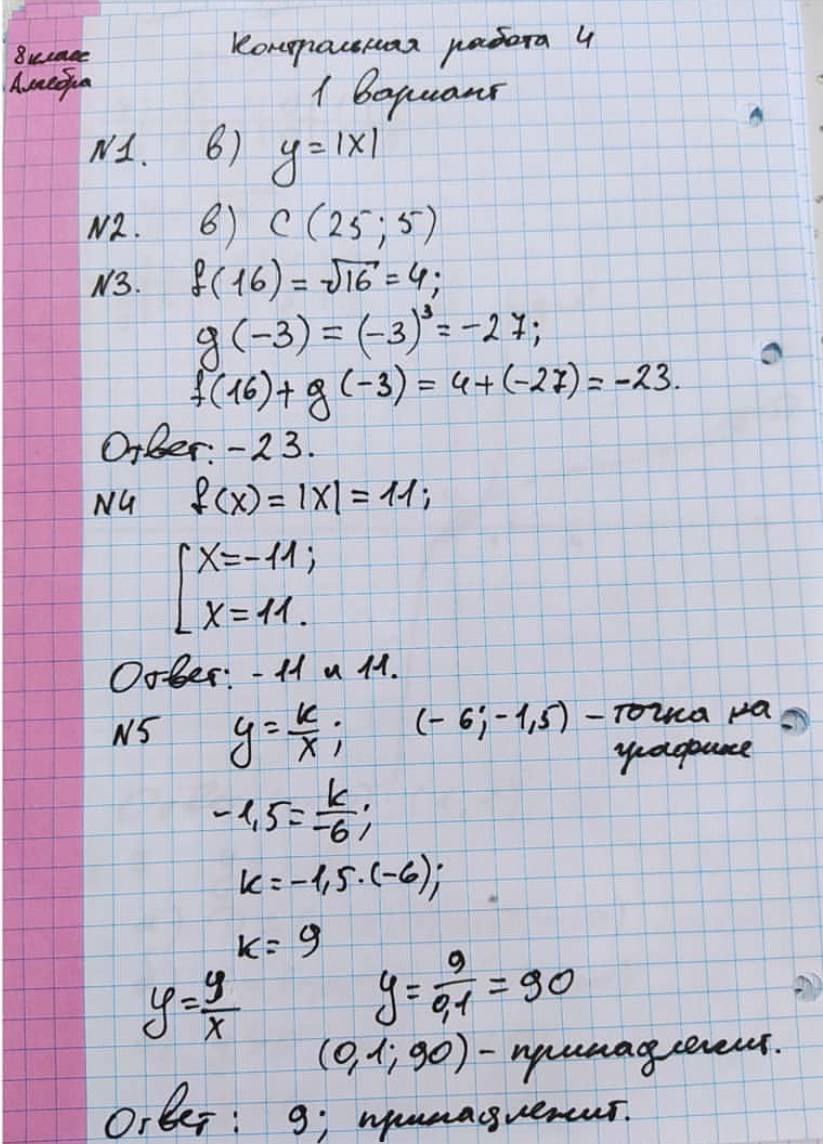 8 класс
Алгебра
Контрольная работа 4
1 вариант
N1. в) y = |x|
N2. в) C (25; 5)
N3. f(16) = √16 = 4;
g(-3) = (-3)³ = -27;
f(16) + g(-3) = 4 + (-27) = -23.
Ответ: -23.
N4 f(x) = |x| = 11;
[ x = -11;
x = 11.
Ответ: -11 и 11.
N5 y = k/x; (-6; -1,5) - точка на
графике
-1,5 = k/-6;
k = -1,5·(-6);
k = 9
y = 9/x y = 9/0,1 = 90
(0,1; 90) - принадлежит.
Ответ: 9; принадлежит.